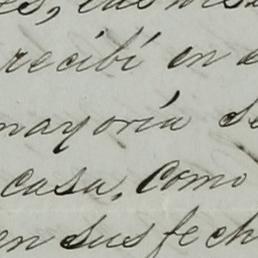 recibí en
mayoría se
casa, como
en sus fech